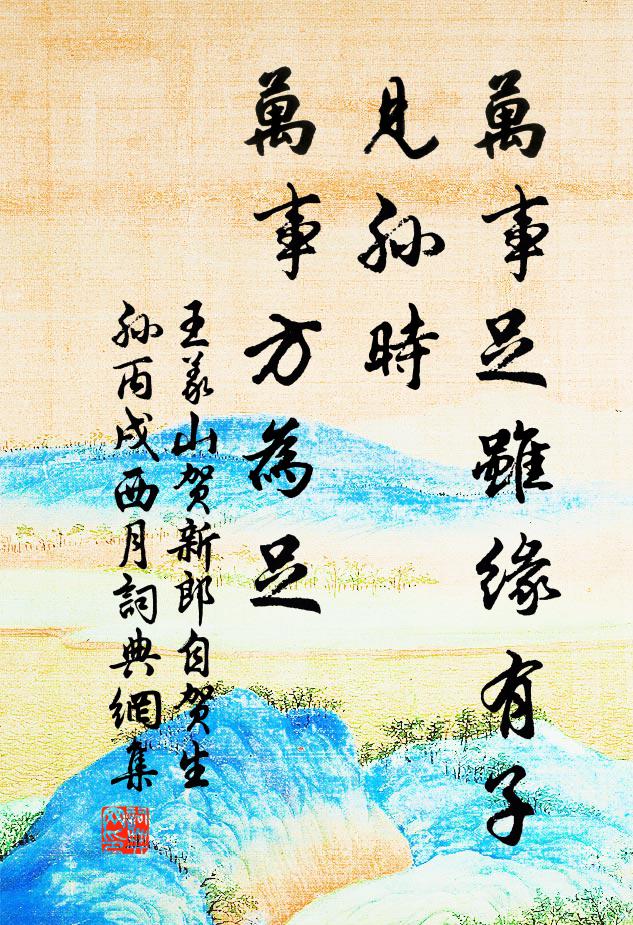 萬事足雖緣有子
見孙時
萬事方為足
王義山賀新郎自賀生
孙丙戌酉月詞典網集